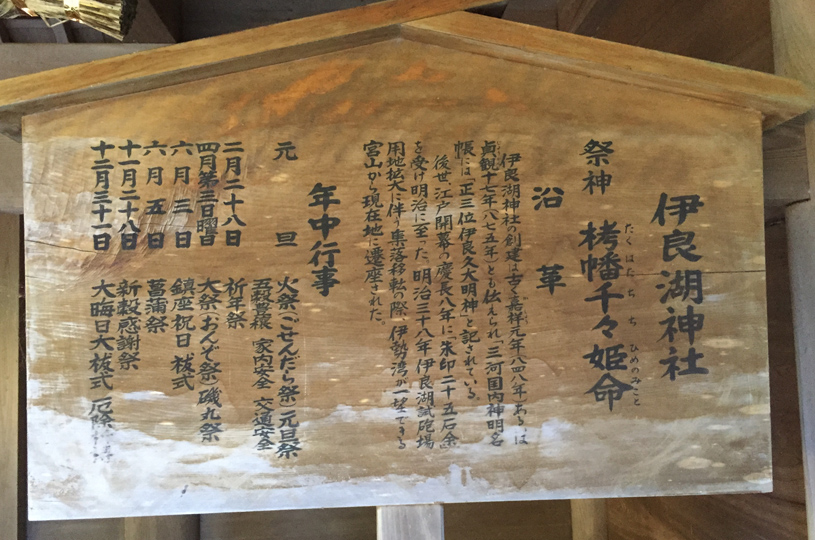 伊良湖神社
祭神 栲幡千々姫命
たくはたちぢひめのみこと
沿革
伊良湖神社の創建は古く嘉祥元年八四八年あるいは
貞観十七年八七五年とも伝えられ「三河国内神明名
帳」には「正三位伊良久大明神」と記されている。
後世江戸開幕の慶長八年に「朱印二十五石余
を受け明治に至った。明治三十八年伊良湖試砲場
用地拡大に伴う集落移転の際、伊勢湾が一望できる
宮山から現在地に遷座された。
年中行事
元旦 火祭(ごせんだら祭)元旦祭
五穀豊穣 家内安全 交通安全
二月二十八日 祈年祭
四月第三日曜日 大祭(おんぞ祭)磯丸祭
六月三日 鎮座祝日 祓式
六月五日 菖蒲祭
十一月二十八日 新穀感謝祭
十二月三十一日 大晦日大祓式 厄除